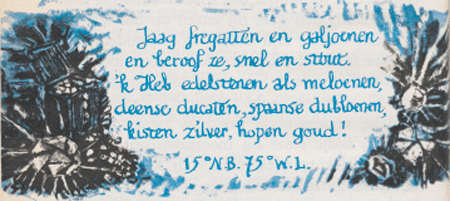 Jaag fregatten en galjoenen
en beroof ze, snel en stout.
'k Heb edelstenen als meloenen,
deense ducaten, spaanse dubloenen,
kisten zilver, hopen goud!
15°N.B. 75°W.L.